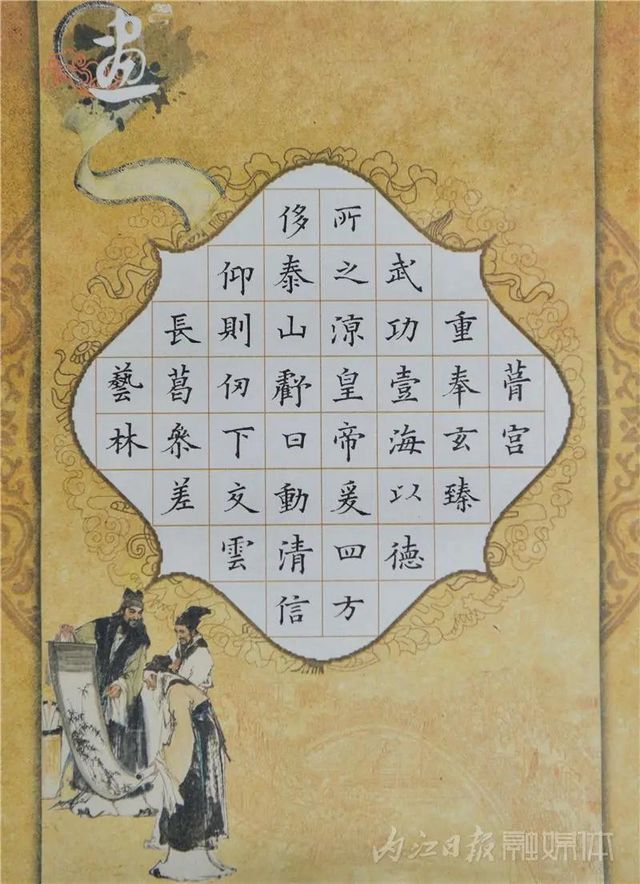 畫
宫
重奉玄臻
武功壹海以德
所之涼皇帝爰四方
侈泰山日動清信
仰則仞下交雲
長葛叅差
藝林
内江日报融媒体